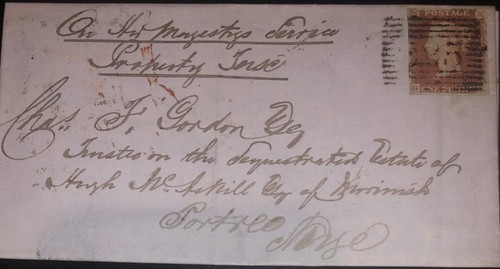 POSTAGE
On Her Majestys Service
Property Tax
Chas. F. Gordon Esq
Trustee on the Sequestrated Estate of
Hugh McAskill Esq of
Portree
Skye